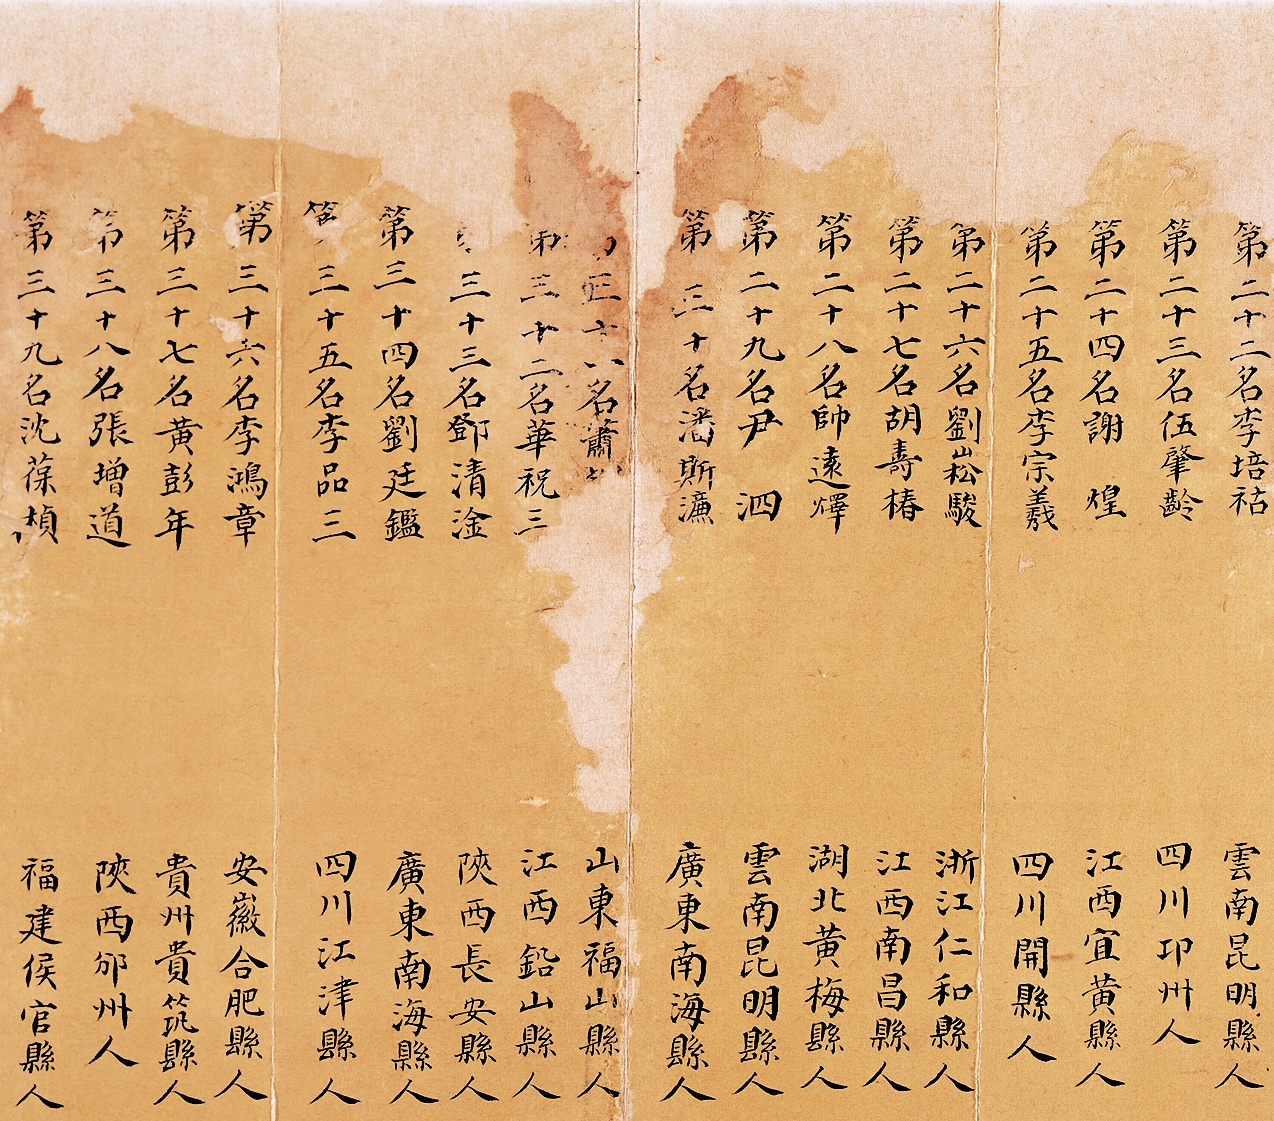 第二十二名李培祜 雲南昆明縣人
第二十三名伍肇齡 四川邛州人
第二十四名謝煌 江西宜黃縣人
第二十五名李宗羲 四川開縣人
第二十六名劉崧駿 浙江仁和縣人
第二十七名胡壽椿 江西南昌縣人
第二十八名帥遠燡 湖北黃梅縣人
第二十九名尹泗 雲南昆明縣人
第三十名潘斯濂 廣東南海縣人
名蕭 山東福山縣人
第三十二名華祝三 江西鉛山縣人
三十三名鄧清淦 陝西長安縣人
第三十四名劉廷鑑 廣東南海縣人
第三十五名李品三 四川江津縣人
第三十六名李鴻章 安徽合肥縣人
第三十七名黃彭年 貴州貴筑縣人
第三十八名張增道 陝西邠州人
第三十九名沈葆楨 福建侯官縣人